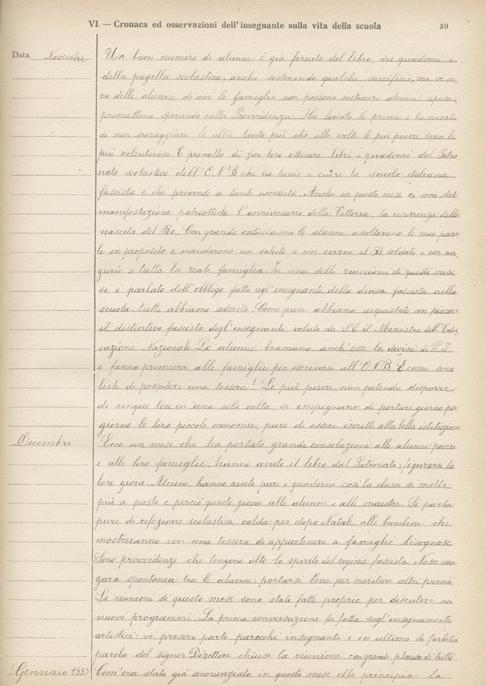 VI. — Cronaca ed osservazioni dell'insegnante sulla vita della scuola 59
Data Novembre
Un buon numero di alunni è già fornito del libro, dei quaderni e
della pagella scolastica, anche sostenendo qualche sacrificio, ma vi so
no delle alunne di cui le famiglie non possono sostenere alcuna spesa,
promettono, sperando nella Provvidenza. Ho lodato le prime e ho cercato
di non scoraggiare le altre tanto più che alle volte le più povere sono le
più volenterose. E prometto di far loro ottenere libri e quaderni dal Patro
nato scolastico dell'E.N.B che sa tanto a cuore la scuola italiana
fascista e che provvede a tante necessità. Anche in questo mese ci sono state
manifestazioni patriottiche l'anniversario della Vittoria, la ricorrenza della
nascita del Re. Con grande entusiasmo le alunne ascoltarono le mie paro
le in proposito e mandarono un saluto e un evviva al Re soldato e un au
gurio a tutta la reale famiglia. In una delle riunioni di questo mese
si è parlato dell'obbligo fatto agl'insegnanti della divisa fascista nella
scuola: tutte abbiamo aderito. Come pure abbiamo acquistato con piacere
il distintivo fascista degl'insegnanti voluto da S.E. il Ministro dell'Edu
cazione Nazionale. Le alunne bramano anch'esse la divisa di P.I.
e fanno premura alle famiglie per iscriversi all'O.N.B. E come sono
liete di possedere una tessera! Le più povere non potendo disporre
di cinque lire in una sola volta, si impegnano di portare giorno per
giorno le loro piccole economie, pure di essere iscritte alla bella istituzione.
Dicembre
Ecco un mese che ha portato grande consolazione alle alunne povere
e alle loro famiglie: hanno avuto il libro dal Patronato; figurarsi la
loro gioia. Alcune hanno avuto pure i quaderni così la classe si mette
più a posto e perciò questo giova alle alunne e alle maestre. Si parla
pure di refezione scolastica calda per dopo Natale alle bambine che
mostreranno con una tessera di appartenere a famiglie bisognose.
Sono provvidenze che tengono alto lo spirito del regime fascista. Nasce una
gara spontanea tra le alunne, portarsi bene per meritare altri premi.
Le riunioni di questo mese sono state fatte proprio per discutere sui
nuovi programmi. La prima conversazione fu fatta sugl'insegnamenti
artistici: vi presero parte parecchi insegnanti e in ultimo la forbita
parola del signor Direttore chiuse la riunione con grande plauso di tutti.
Gennaio 1935
Com'era stato già annunziato in questo mese ebbe principio la